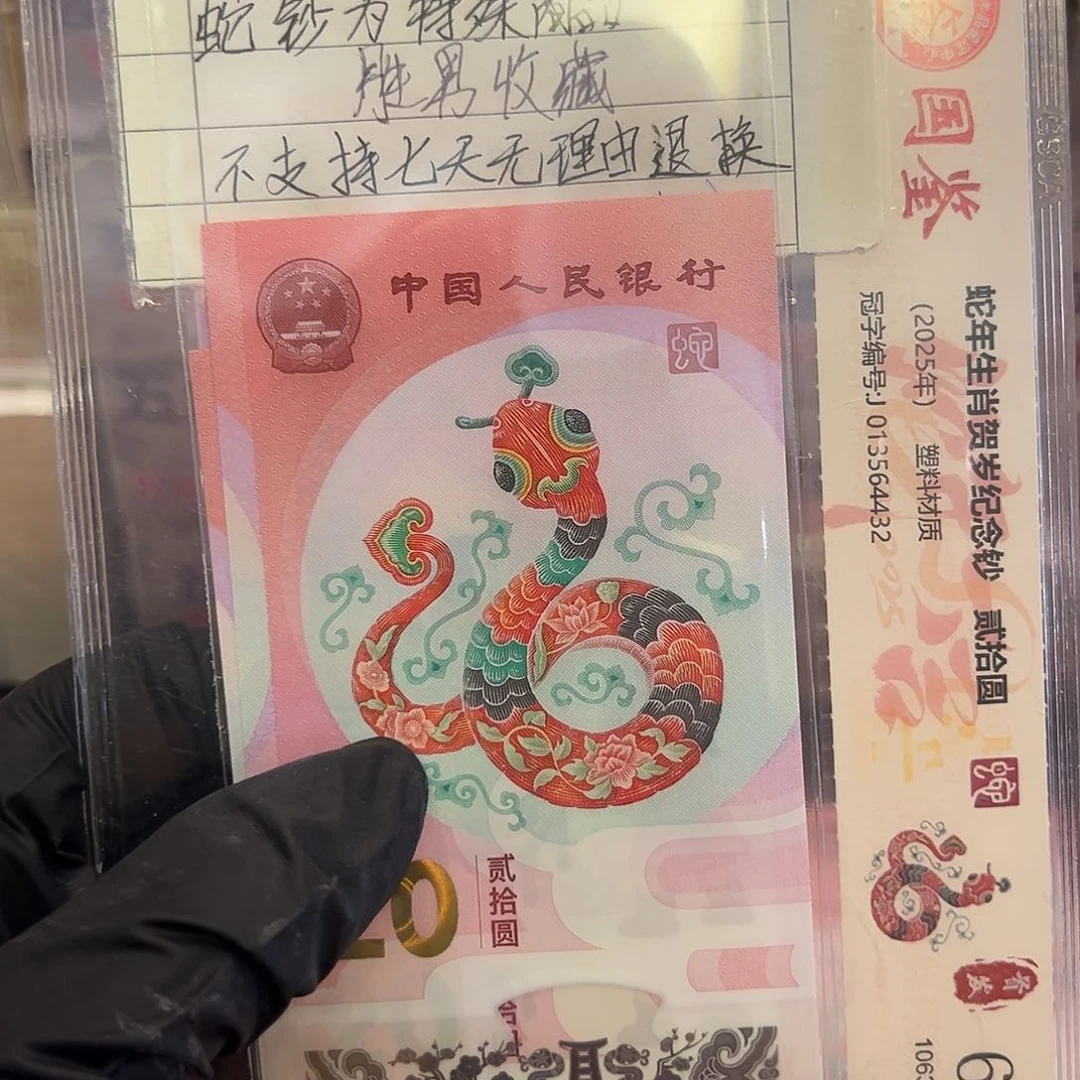 蛇钞为特殊商品
胜男收藏
不支持七天无理由退换
中国人民银行
蛇
20
贰拾圆
国鉴
蛇年生肖贺岁纪念钞 贰拾圆
(2025年) 塑料材质
冠字编号:J 013564432
蛇
首发
GSCA
五